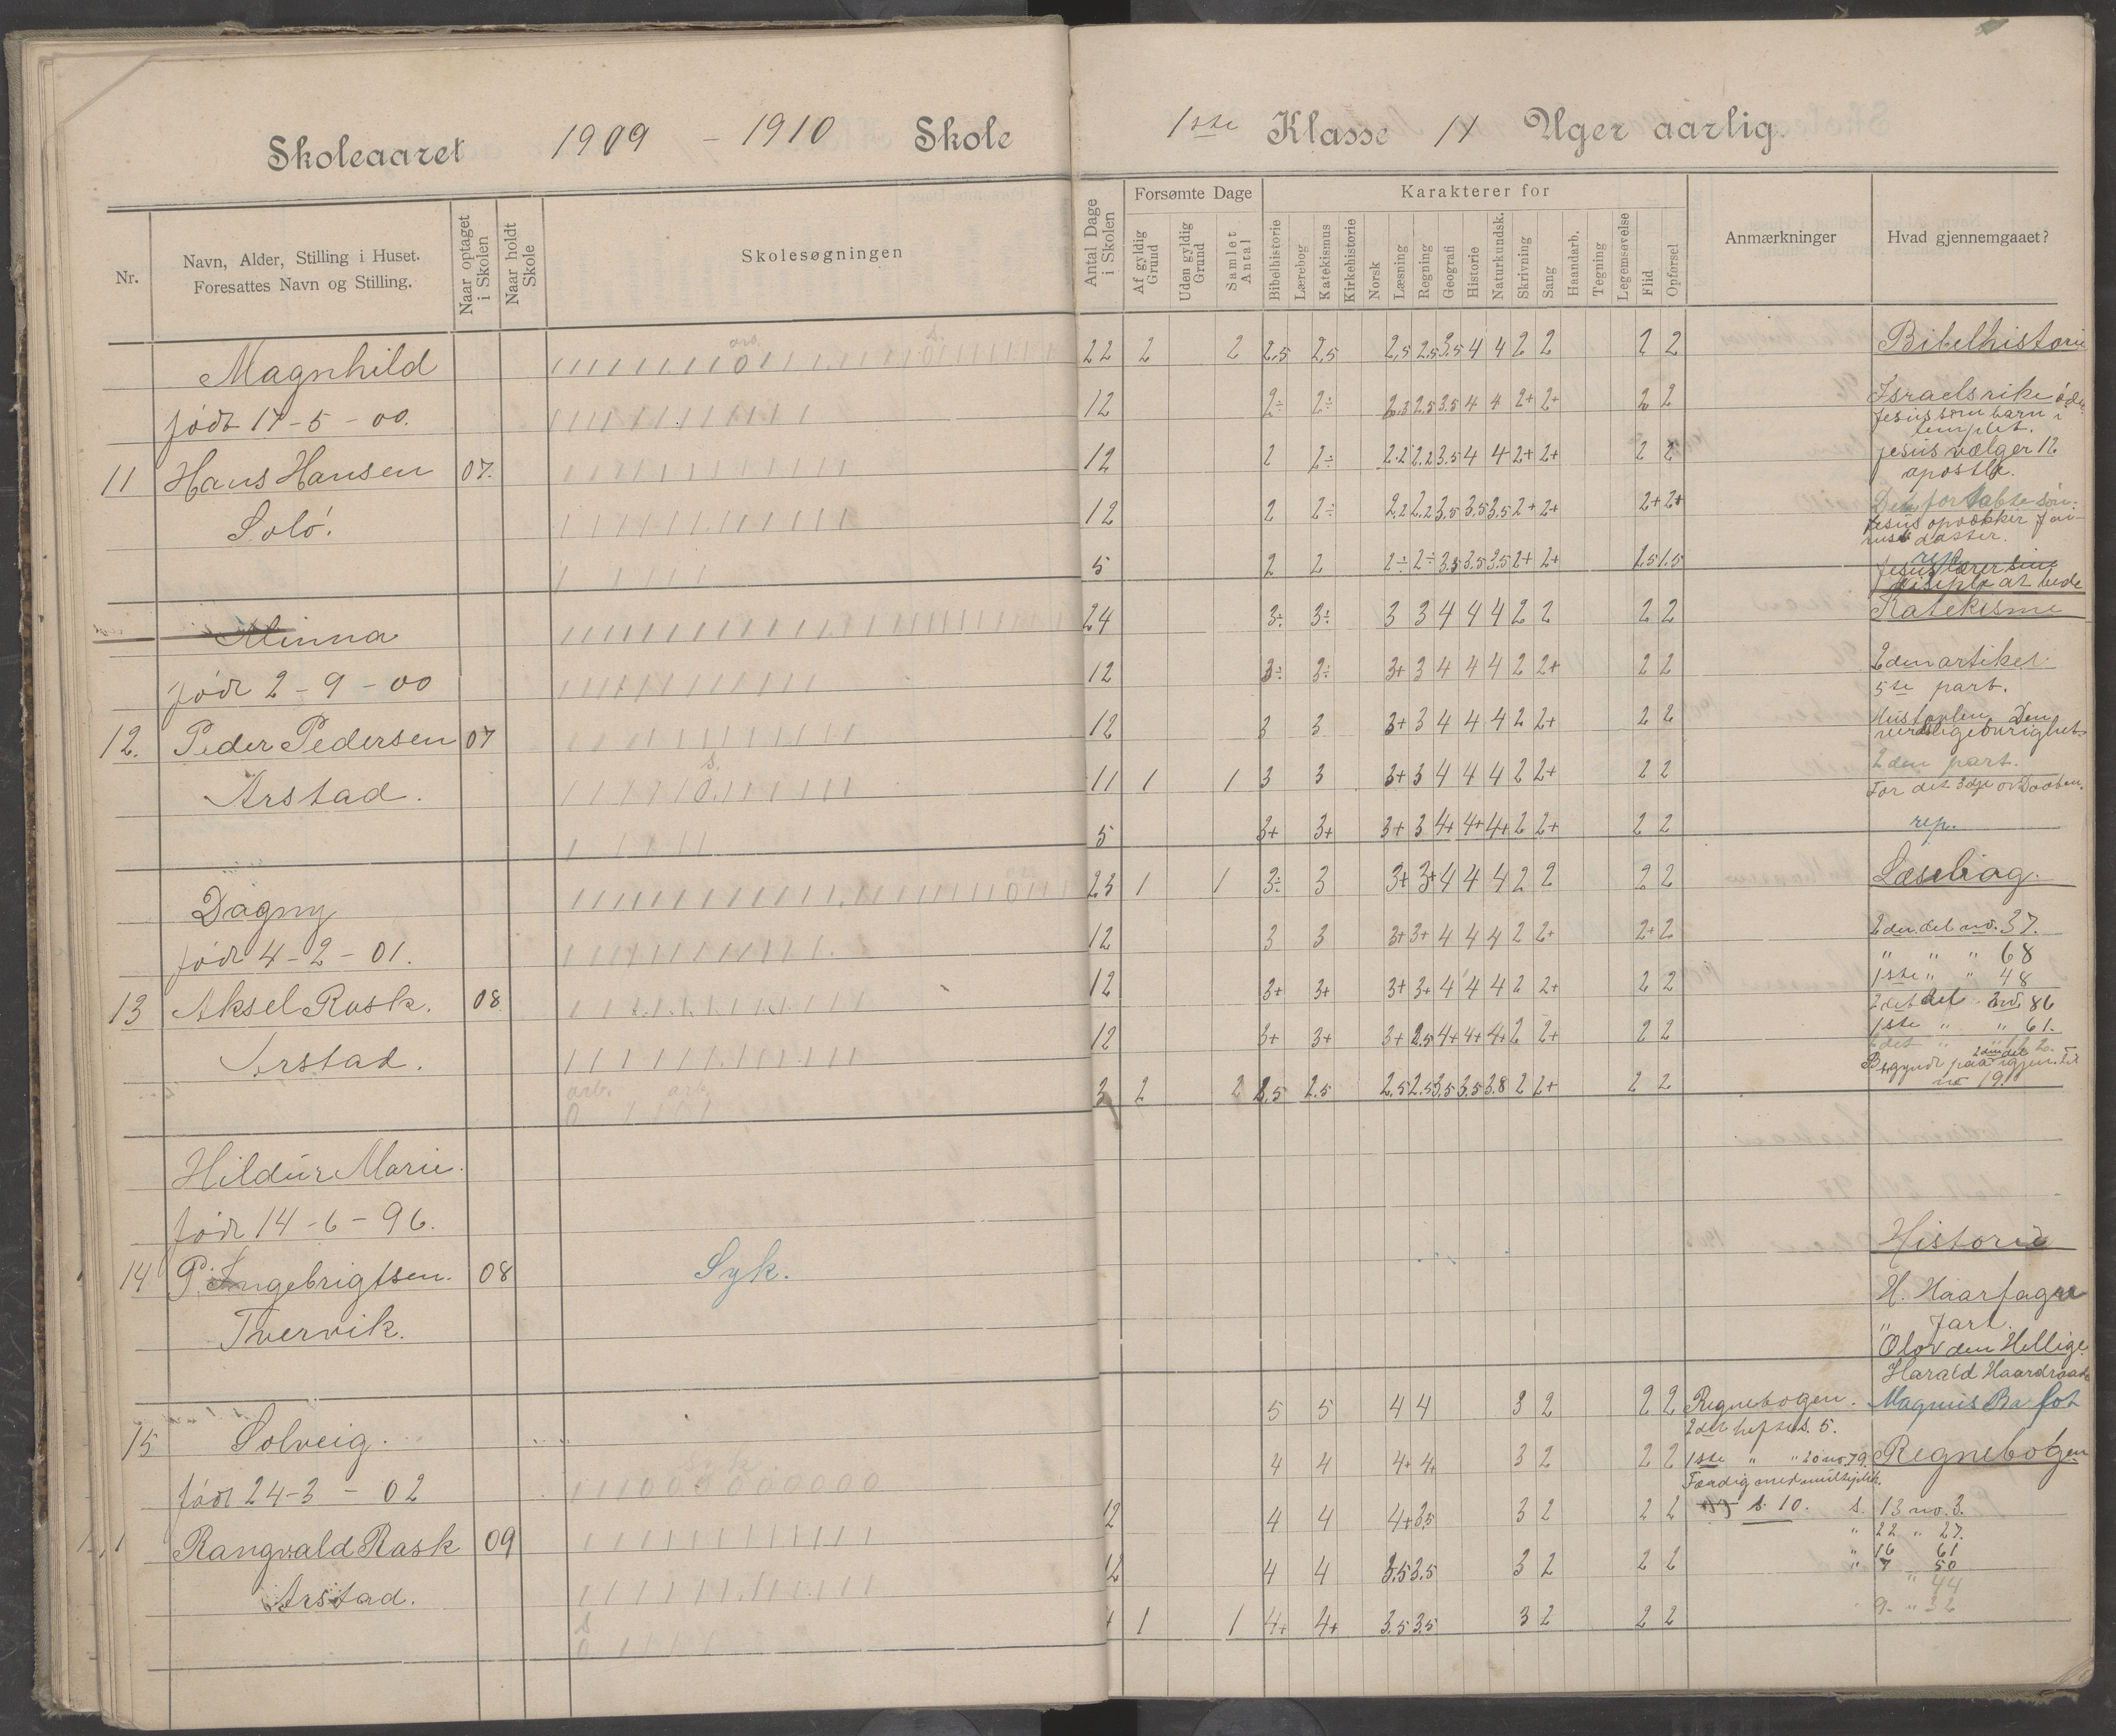 Skoleaaret 1909 - 1910 Skole
1ste Klasse Uger aarlig.
Nr.
Navn, Alder, Stilling i Huset.
Foresattes Navn og Stilling.
Naar optaget i Skolen
Naar holdt Skole
Skolesøgningen
Antal Dage i Skolen
Forsømte Dage
Af gyldig Grund
Uden gyldig Grund
Samlet Antal
Karakterer for
Bibelhistorie
Lærebog
Katekismus
Kirkehistorie
Norsk
Læsning
Regning
Geografi
Historie
Naturkundsk.
Skrivning
Sang
Haandarb.
Tegning
Legemsøvelse
Flid
Opførsel
Anmærkninger
Hvad gjennemgaaet?
Magnhild 22 2 2 2,5 2,5 2,5 2,5 3,5 4 4 2 2 2 2 Bibelhistorie
født 17-5-00. 12 2÷ 2÷ 2,5 2,5 3,5 4 4 2+ 2+ 2 2 Israelsrike
Jesus som barn i
templet.
11 Hans Hansen 07. 12 2 2÷ 2.2 2.2 3.5 4 4 2+ 2+ 2 2 Jesus vælger 12
apostle.
Solö. 12 2 2÷ 2.2 2.2 3,5 3.5 3.5 2+ 2+ 2+ 2+ Den fortabte søn.
Jesus opvækker Jai-
rus datter.
5 2 2 2÷ 2÷ 3.5 3.5 3.5 2+ 2+ 1.5 1.5 Jesus lærer sine
disiple at bede
Minna 24 3÷ 3÷ 3 3 4 4 4 2 2 2 2 Katekisme
født 2-9-00 12 3÷ 3÷ 3+ 3 4 4 4 2 2+ 2 2 2den artikel
5te part.
12. Peder Pedersen 07 12 3 3 3+ 3 4 4 4 2 2+ 2 2 Hustavlen Den
verdslige øvrighet
Arstad. s. 11 1 1 3 3 3+ 3 4 4 4 2 2+ 2 2 2den part.
For det 3dje Daaben.
5 3+ 3+ 3+ 3 4+ 4+ 4+ 2 2+ 2 2 rep.
Dagny 23 1 1 3÷ 3 3+ 3+ 4 4 4 2 2 2 2 Læsebog.
født 4-2-01. 12 3 3 3+ 3+ 4 4 4 2 2+ 2+ 2 2den del no. 37.
" " " 68
13 Aksel Rask. 08 12 3+ 3+ 3+ 3+ 4 4 4 2 2+ 2 2 1ste " " 48
2det del no. 86
Arstad. 12 3+ 3+ 3+ 2.5 4+ 4+ 4+ 2 2+ 2 2 1ste " " 61.
arb. arb. 3 2 2 2.5 2.5 2,5 2.5 3,5 3.5 3.8 2 2+ 2 2 Begyndt paa 2den del igjen. til
no 19.
Hildur Marie.
født 14-6-96. Historie
14 P. Ingebrigtsen. 08 Syk. H. Haarfagre
Tvervik. " Jarl.
Olav den Hellige
Harald Haardraade
5 5 4 4 3 2 2 2 Regnebogen. Magnus Barfot
2det hefte s. 5.
15 Solveig. 4 4 4+ 4+ 3 2 2 2 1ste " " 20 no 79. Regnebogen
Færdig med multiplik.
født 24-3-02 Syk 12 4 4 4+ 3.5 3 2 2 2 s. 10. s. 13 no. 3.
" 22 " 27.
Rangvald Rask 09 12 4 4 3.5 3.5 3 2 2 2 " 16 61
" 7 50
" 44
Arstad. 4 1 1 4+ 4+ 3.5 3.5 3 2 2 2 " 9- " 32
s